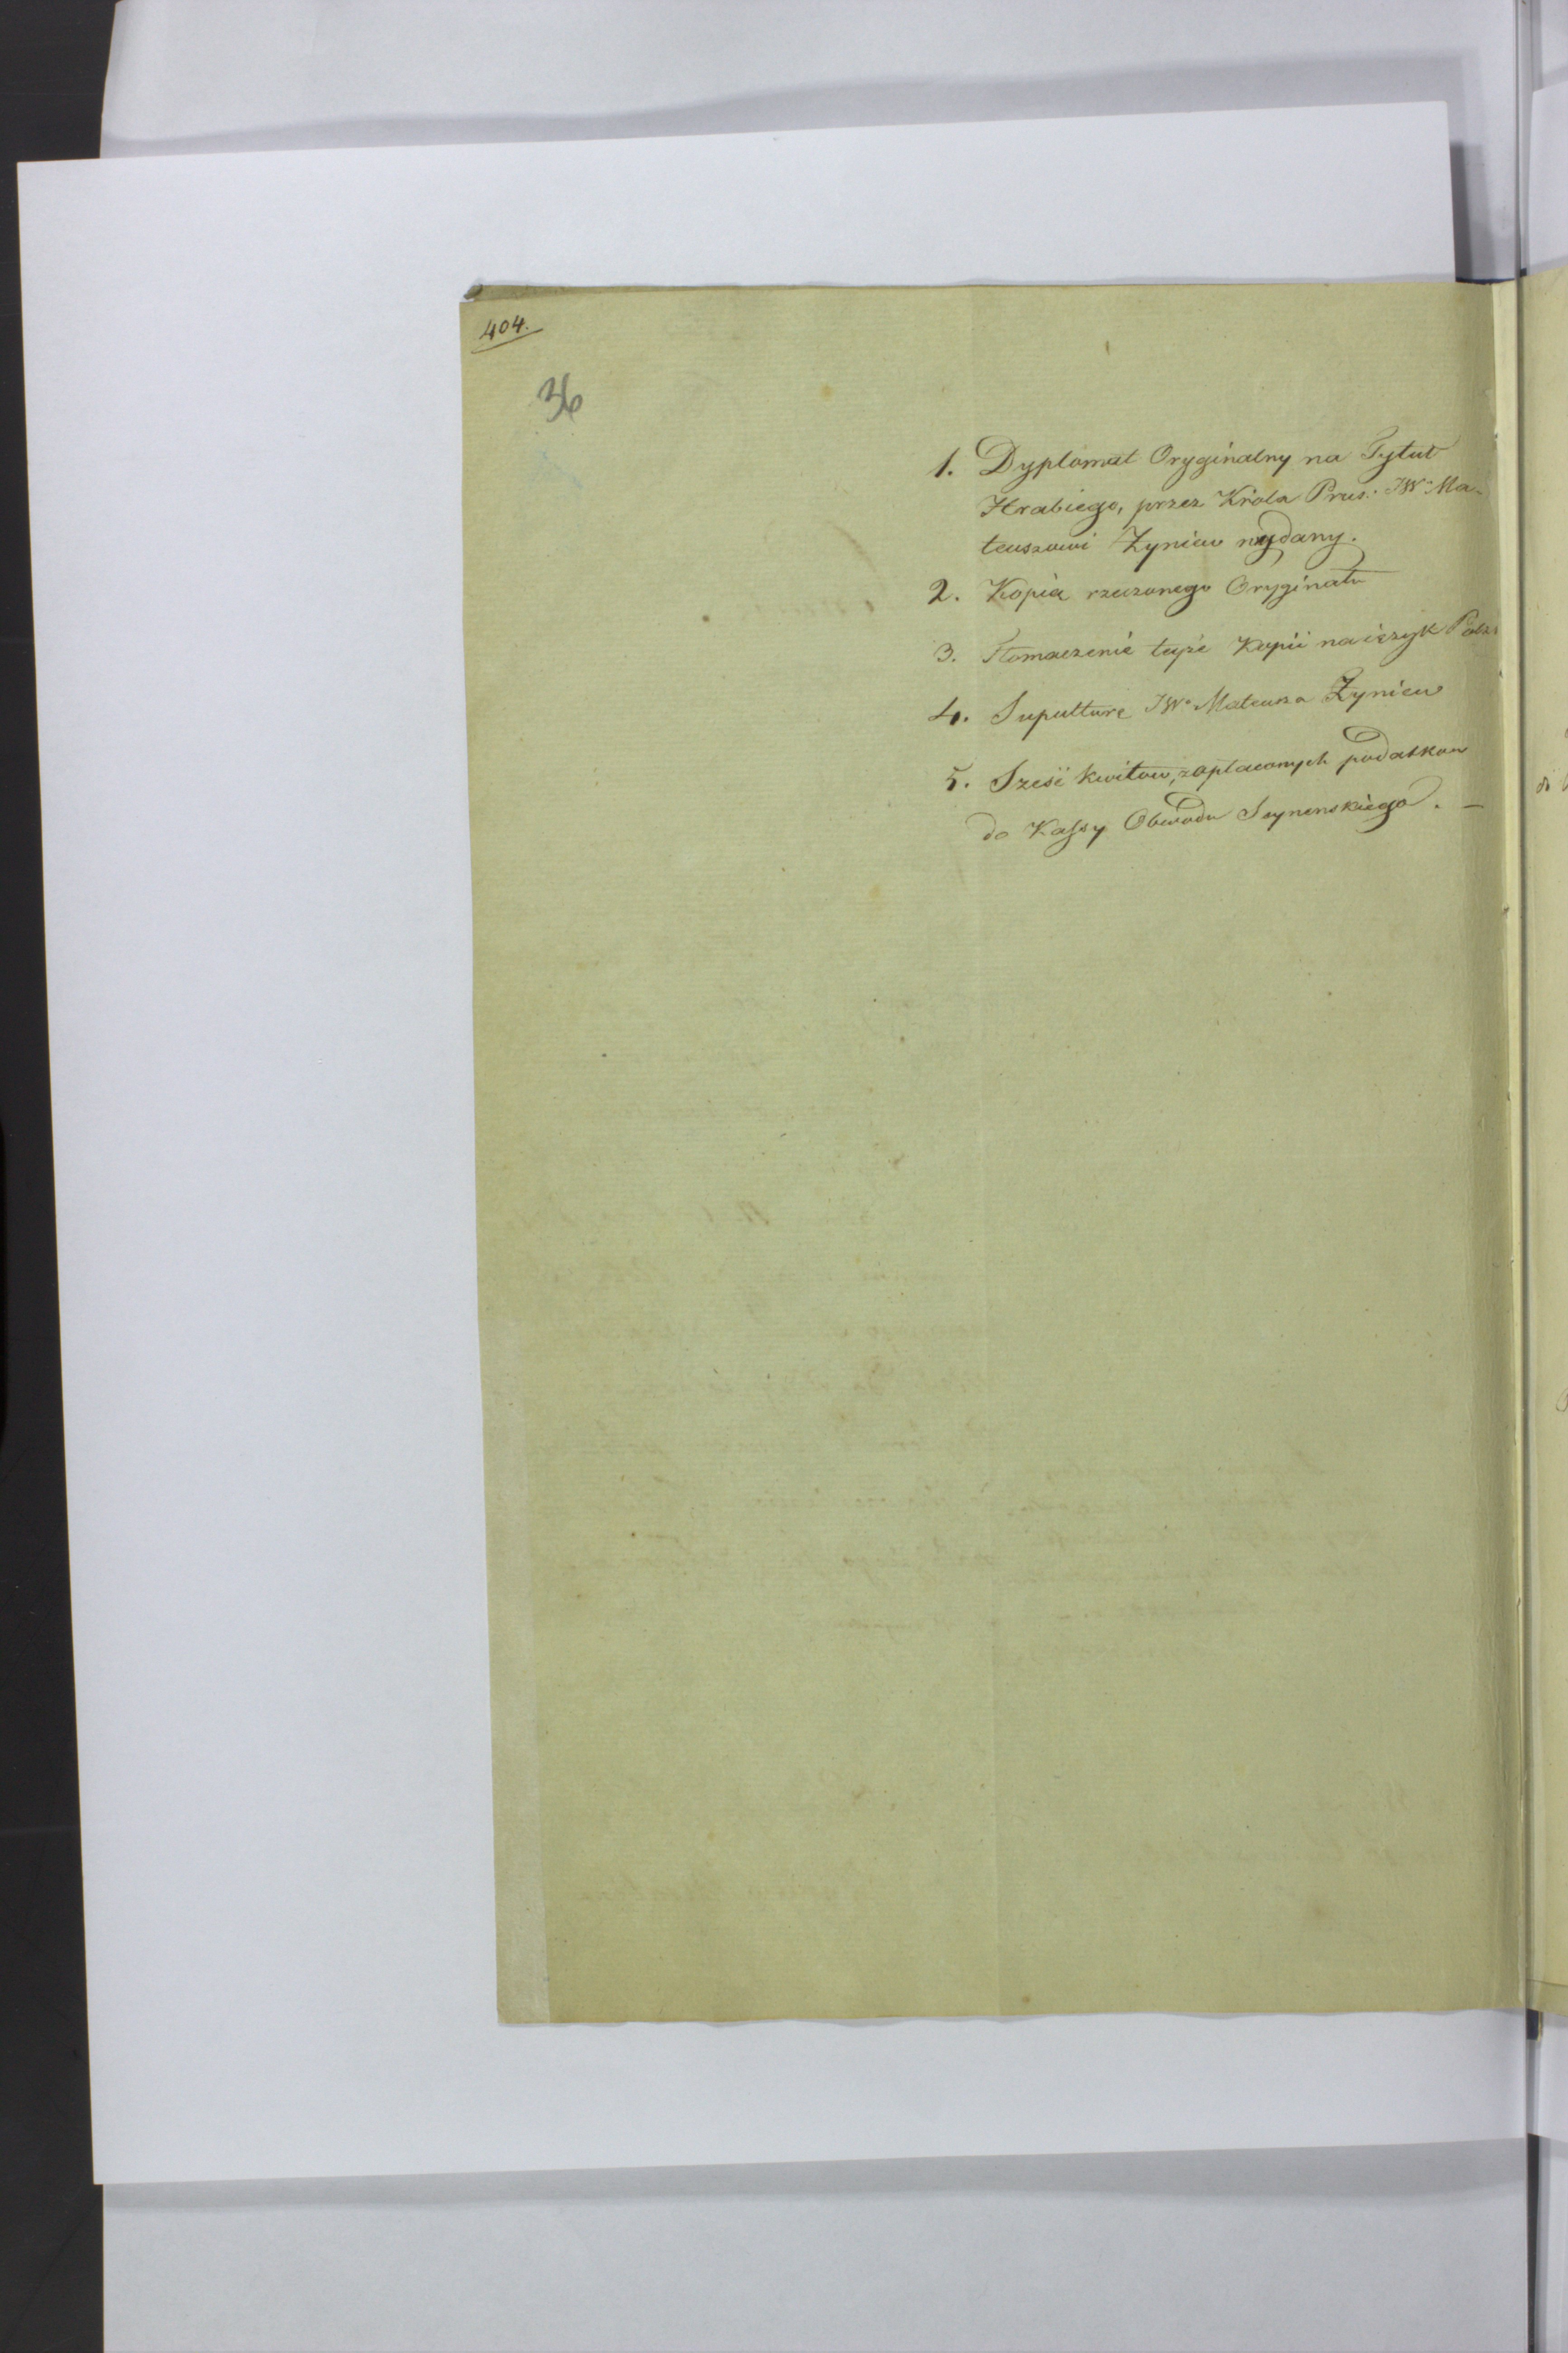 404.
36
1. Dyplomat Oryginalny na Tytuł
Hrabiego, przez Króla Prus: JW. Ma-
teuszowi Zyniew wydany.
2. Kopia rzeczonego Oryginału
3. Tłomaczenie teyże Kopii na ięzyk Pols:
4. Sepulturę JW. Mateusza Zyniew
5. Sześć kwitow, zapłaconych podatkow
do Kassy Obwodu Seynenskiego. —